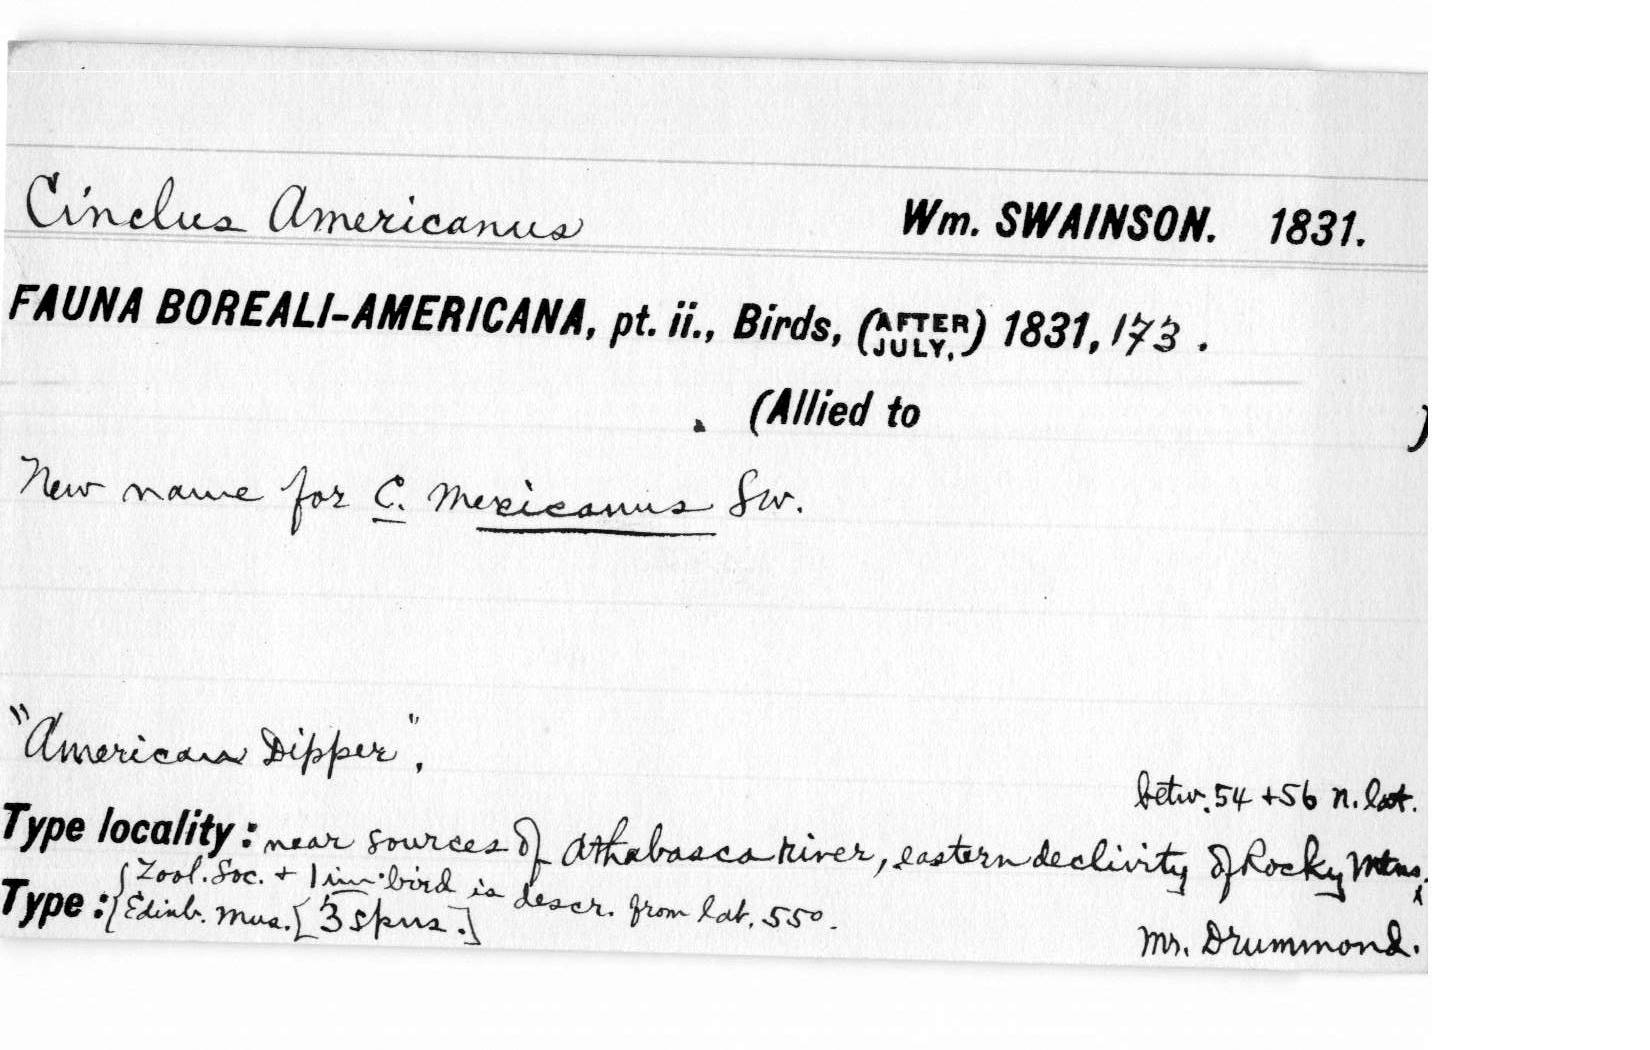 Cinclus Americanus Wm. SWAINSON. 1831.
FAUNA BOREALI-AMERICANA, pt. ii., Birds, (AFTER JULY,) 1831, 173.
. (Allied to )
New name for C. Mexicanus Sw.
"American Dipper".
betw. 54 + 56 n. lat.
Type locality: near sources of Athabasca river, eastern declivity of Rocky Mtns.
Type: { Zool. Soc. + 1 im. bird is descr. from lat. 55°.
Edinb. Mus. [3 spns.]
Mr. Drummond.